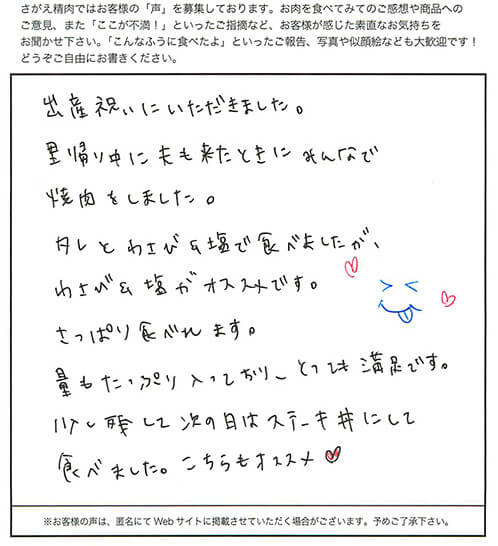 さがえ精肉ではお客様の「声」を募集しております。お肉を食べてみてのご感想や商品への
ご意見、また「ここが不満！」といったご指摘など、お客様が感じた素直なお気持ちを
お聞かせ下さい。「こんなふうに食べたよ」といったご報告、写真や似顔絵なども大歓迎です！
どうぞご自由にお書きください。
出産祝いにいただきました。
里帰り中に夫も来たときにみんなで
焼肉をしました。
タレとわさび&塩で食べましたが、
わさび&塩がオススメです。
さっぱり食べれます。
量もたっぷり入っており、とっても満足です。
少し残して次の日はステーキ丼にして
食べました。こちらもオススメ
※お客様の声は、匿名にてWebサイトに掲載させていただく場合がございます。予めご了承下さい。